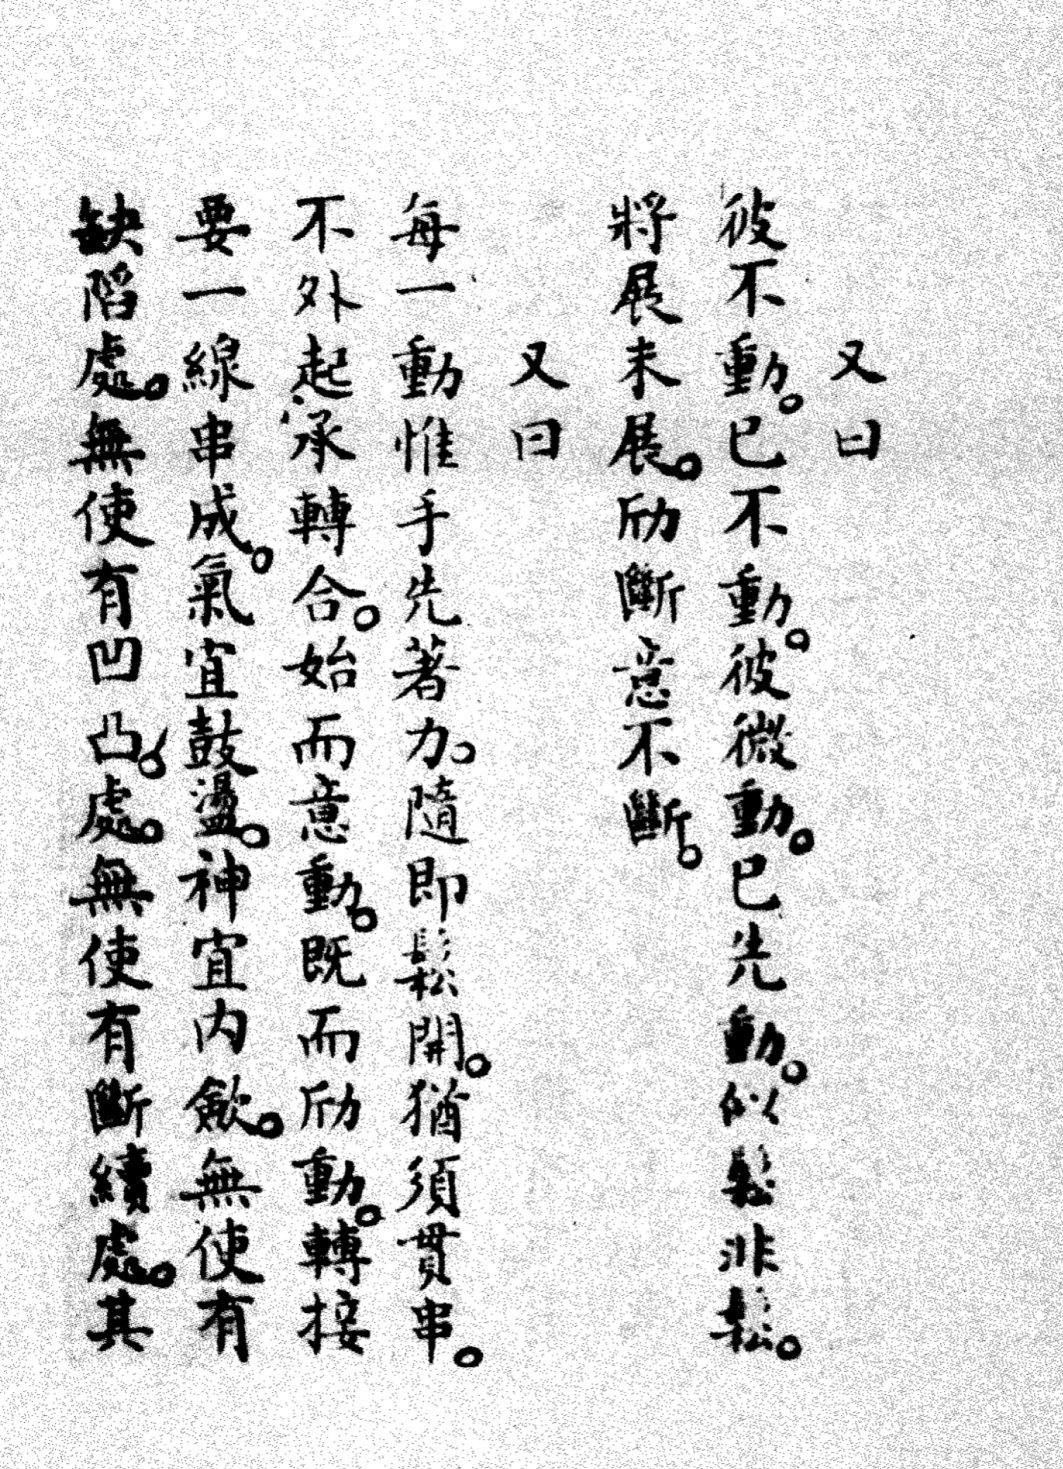 又曰
彼不動。已不動。彼微動。已先動。似鬆非鬆。
將展未展。劤斷意不斷。
又曰
每一動惟手先著力。隨即鬆開。猶須貫串。
不外起承轉合。始而意動。既而劤動。轉接
要一線串成。氣宜鼓盪。神宜內歛。無使有
缺陷處。無使有凹凸。處。無使有斷續處。其